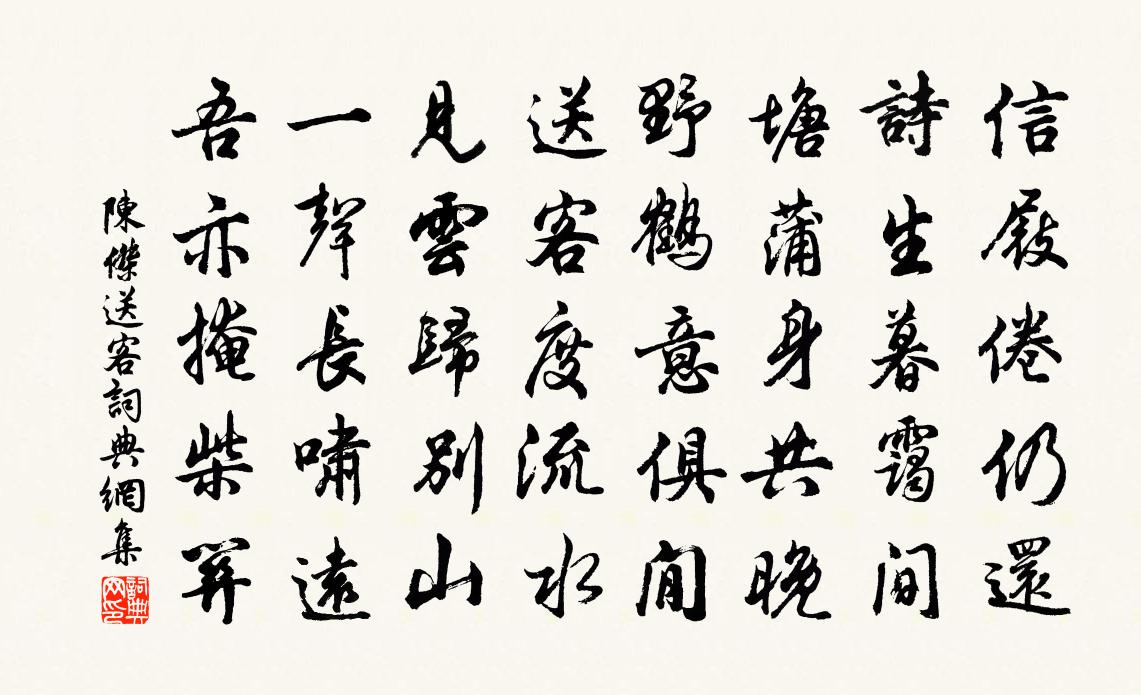 信屐倦仍還
詩生暮靄間
塘蒲身共晚
野鶴意俱閒
送客度流水
見雲歸別山
一聲長嘯遠
吾亦掩柴關
陳傑送客詞典網集
詞典网印